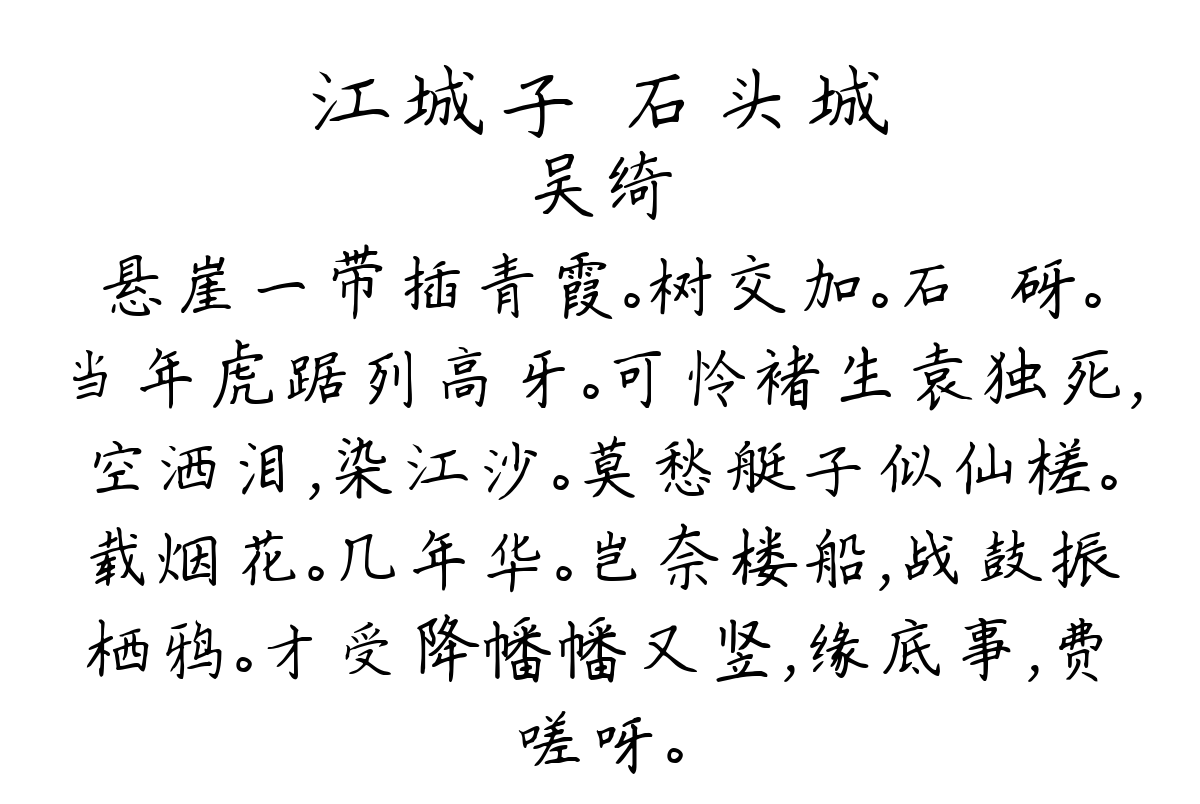 江城子 石头城
吴绮
悬崖一带插青霞。树交加。石 砑。
当年虎踞列高牙。可怜褚生袁独死,
空洒泪,染江沙。莫愁艇子似仙槎。
载烟花。几年华。岂奈楼船,战鼓振
栖鸦。才受降幡幡又竖,缘底事,费
嗟呀。